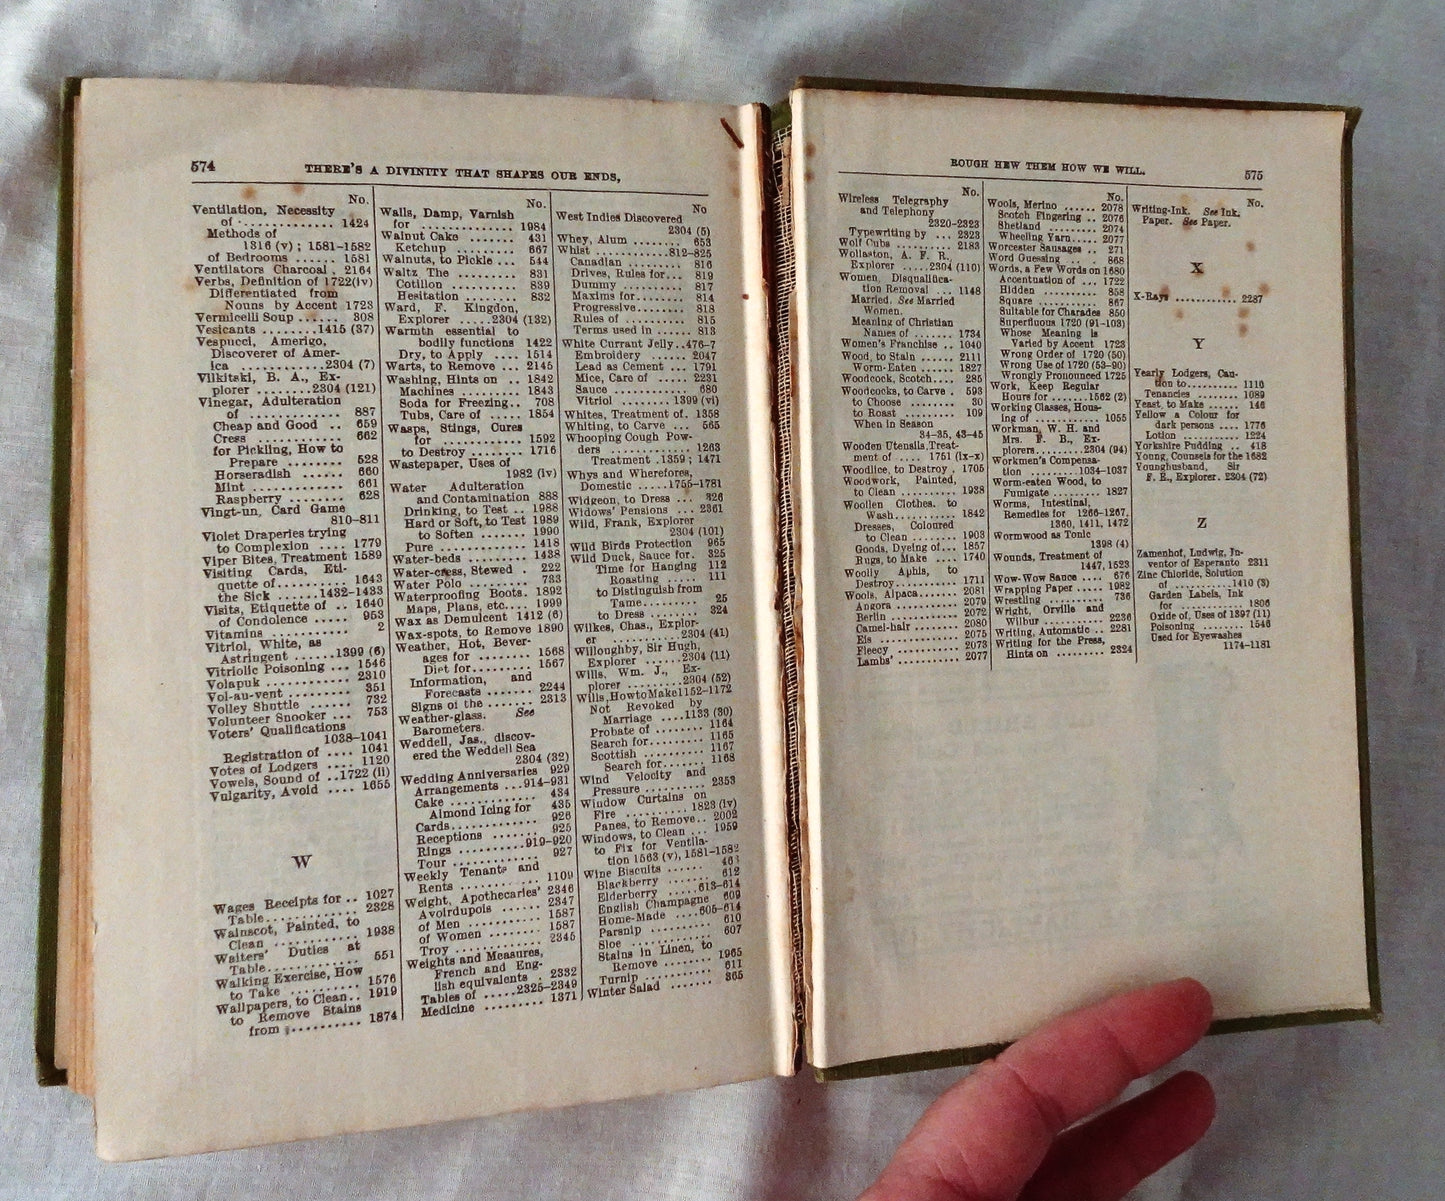 574
THERE'S A DIVINITY THAT SHAPES OUR ENDS,
No.
Ventilation, Necessity
of ............ 1424
Methods of
1316 (v) ; 1581-1582
of Bedrooms ...... 1581
Ventilators Charcoal . 2164
Verbs, Definition of 1722(iv)
Differentiated from
Nouns by Accent 1723
Vermicelli Soup ...... 308
Vesicants ........ 1415 (37)
Vespucci, Amerigo,
Discoverer of Amer-
ica ............ 2304 (7)
Vilkitski, B. A., Ex-
plorer ........ 2304 (121)
Vinegar, Adulteration
of ............ 887
Cheap and Good .. 659
Cress ........... 662
for Pickling, How to
Prepare ........ 528
Horseradish ...... 660
Mint ............ 661
Raspberry ........ 628
Vingt-un, Card Game
810-811
Violet Draperies trying
to Complexion .... 1779
Viper Bites, Treatment 1589
Visiting Cards, Eti-
quette of .......... 1643
the Sick ...... 1432-1433
Visits, Etiquette of .. 1640
of Condolence ..... 953
Vitamins ........... 2
Vitriol, White, as
Astringent ...... 1399 (6)
Vitriolic Poisoning ... 1546
Volapuk ............ 2310
Vol-au-vent ......... 351
Volley Shuttle ...... 732
Volunteer Snooker ... 753
Voters' Qualifications
1038-1041
Registration of .... 1041
Votes of Lodgers .... 1120
Vowels, Sound of .. 1722 (ii)
Vulgarity, Avoid .... 1655
W
Wages Receipts for .. 1027
Table ............. 2328
Wainscot, Painted, to
Clean ............ 1938
Waiters' Duties at
Table ............. 551
Walking Exercise, How
to Take .......... 1576
Wallpapers, to Clean .. 1919
to Remove Stains
from ............ 1874
No.
Walls, Damp, Varnish
for ............ 1984
Walnut Cake ....... 431
Ketchup ........ 667
Walnuts, to Pickle ... 544
Waltz The ......... 831
Cotillon ......... 839
Hesitation ........ 832
Ward, F. Kingdon,
Explorer .... 2304 (132)
Warmth essential to
bodily functions 1422
Dry, to Apply .... 1514
Warts, to Remove ... 2145
Washing, Hints on .. 1842
Machines ........ 1843
Soda for Freezing .. 708
Tubs, Care of .... 1854
Wasps, Stings, Cures
for ............ 1592
to Destroy ....... 1716
Wastepaper, Uses of
1982 (iv)
Water Adulteration
and Contamination 888
Drinking, to Test .. 1988
Hard or Soft, to Test 1989
to Soften ........ 1990
Pure ............ 1418
Water-beds ......... 1438
Water-cress, Stewed . 222
Water Polo ......... 733
Waterproofing Boots . 1892
Maps, Plans, etc .... 1999
Wax as Demulcent 1412 (6)
Wax-spots, to Remove 1890
Weather, Hot, Bever-
ages for ........ 1568
Diet for .......... 1567
Information, and
Forecasts ....... 2244
Signs of the ...... 2313
Weather-glass. See
Barometers.
Weddell, Jas., discov-
ered the Weddell Sea
2304 (32)
Wedding Anniversaries 929
Arrangements ... 914-931
Cake ............ 434
Almond Icing for 435
Cards ............ 926
Receptions ....... 925
Rings ......... 919-920
Tour ............ 927
Weekly Tenants and
Rents ........... 1109
Weight, Apothecaries' 2346
Avoirdupois ...... 2347
of Men .......... 1587
of Women ........ 1587
Troy ............ 2345
Weights and Measures,
French and Eng-
lish equivalents . 2332
Tables of ..... 2325-2349
Medicine ......... 1371
No
West Indies Discovered
2304 (5)
Whey, Alum ........ 653
Whist .......... 812-825
Canadian ......... 816
Drives, Rules for ... 819
Dummy .......... 817
Maxims for ........ 814
Progressive ........ 818
Rules of .......... 815
Terms used in ..... 813
White Currant Jelly .. 476-7
Embroidery ...... 2047
Lead as Cement ... 1791
Mice, Care of ..... 2231
Sauce ............ 680
Vitriol ........ 1399 (vi)
Whites, Treatment of . 1358
Whiting, to Carve ... 565
Whooping Cough Pow-
ders ........... 1263
Treatment . 1359 ; 1471
Whys and Wherefores,
Domestic ... 1755-1781
Widgeon, to Dress ... 326
Widows' Pensions ... 2361
Wild, Frank, Explorer
2304 (101)
Wild Birds Protection 965
Wild Duck, Sauce for . 325
Time for Hanging 112
Roasting ..... 111
to Distinguish from
Tame ......... 25
to Dress ......... 324
Wilkes, Chas., Explor-
er ............ 2304 (41)
Willoughby, Sir Hugh,
Explorer ..... 2304 (11)
Wills, Wm. J., Ex-
plorer ......... 2304 (52)
Wills, How to Make 1152-1172
Not Revoked by
Marriage .... 1133 (30)
Probate of ........ 1164
Search for ........ 1165
Scottish .......... 1167
Search for ...... 1168
Wind Velocity and
Pressure ......... 2353
Window Curtains on
Fire .......... 1823 (iv)
Panes, to Remove .. 2002
Windows, to Clean ... 1959
to Fix for Ventila-
tion 1563 (v), 1581-1582
Wine Biscuits .......
Blackberry ....... 612
Elderberry ..... 613-614
English Champagne 609
Home-Made .... 605-614
Parsnip .......... 610
Sloe ............. 607
Stains in Linen, to
Remove ........ 1965
Turnip ........... 611
Winter Salad ....... 365
ROUGH HEW THEM HOW WE WILL.
575
No.
Wireless Telegraphy
and Telephony
2320-2323
Typewriting by ... 2323
Wolf Cubs .......... 2183
Wollaston, A. F. R.,
Explorer .... 2304 (110)
Women, Disqualifica-
tion Removal .. 1148
Married. See Married
Women.
Meaning of Christian
Names of ....... 1734
Women's Franchise .. 1040
Wood, to Stain ...... 2111
Worm-Eaten ...... 1827
Woodcock, Scotch .... 285
Woodcocks, to Carve . 593
to Choose ........ 30
to Roast ......... 109
When in Season
34-35, 43-45
Wooden Utensils, Treat-
ment of .... 1751 (ix-x)
Woodlice, to Destroy . 1705
Woodwork, Painted,
to Clean .......... 1938
Woollen Clothes, to
Wash ........... 1842
Dresses, Coloured
to Clean ........ 1903
Goods, Dyeing of ... 1857
Rugs, to Make .... 1740
Woolly Aphis, to
Destroy .......... 1711
Wools, Alpaca ....... 2081
Angora ........... 2079
Berlin ............ 2072
Camel-hair ........ 2080
Eis .............. 2075
Fleecy ........... 2073
Lambs' ........... 2077
No.
Wools, Merino ...... 2078
Scotch Fingering .. 2076
Shetland .......... 2074
Wheeling Yarn ..... 2077
Worcester Sausages .. 271
Word Guessing ...... 868
Words, a Few Words on 1680
Accentuation of ... 1722
Hidden .......... 858
Square ........... 867
Suitable for Charades 850
Superfluous 1720 (91-103)
Whose Meaning is
Varied by Accent 1723
Wrong Order of 1720 (50)
Wrong Use of 1720 (53-90)
Wrongly Pronounced 1725
Work, Keep Regular
Hours for .... 1562 (2)
Working Classes, Hous-
ing of ........... 1055
Workman, W. H. and
Mrs. F. B., Ex-
plorers ........ 2304 (94)
Workmen's Compensa-
tion ......... 1034-1037
Worm-eaten Wood, to
Fumigate ........ 1827
Worms, Intestinal,
Remedies for 1266-1267,
1360, 1411, 1472
Wormwood as Tonic
1398 (4)
Wounds, Treatment of
1447, 1523
Wow-Wow Sauce .... 676
Wrapping Paper ..... 1982
Wrestling ........... 736
Wright, Orville and
Wilbur ........... 2236
Writing, Automatic .. 2281
Writing for the Press,
Hints on ........ 2324
No.
Writing-Ink. See Ink.
Paper. See Paper.
X
X-Rays ............ 2287
Y
Yearly Lodgers, Cau-
tion to .......... 1116
Tenancies ........ 1089
Yeast, to Make ...... 146
Yellow a Colour for
dark persons .... 1776
Lotion ........... 1224
Yorkshire Pudding .. 418
Young, Counsels for the 1682
Younghusband, Sir
F. E., Explorer. 2304 (72)
Z
Zamenhof, Ludwig, In-
ventor of Esperanto 2311
Zinc Chloride, Solution
of ........... 1410 (3)
Garden Labels, Ink
for ............ 1806
Oxide of, Uses of 1397 (11)
Poisoning ........ 1546
Used for Eyewashes
1174-1181